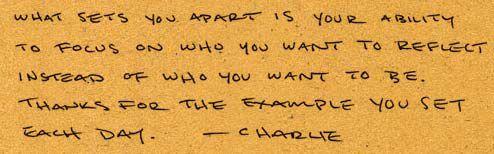 WHAT SETS YOU APART IS YOUR ABILITY
TO FOCUS ON WHO YOU WANT TO REFLECT
INSTEAD OF WHO YOU WANT TO BE.
THANKS FOR THE EXAMPLE YOU SET
EACH DAY. — CHARLIE